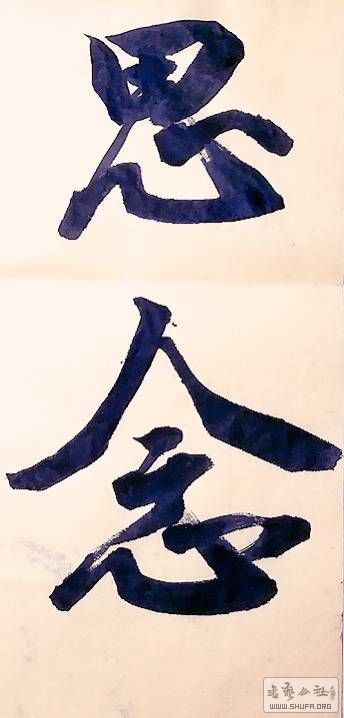 思
念
书艺公社
WWW.SHUFA.ORG